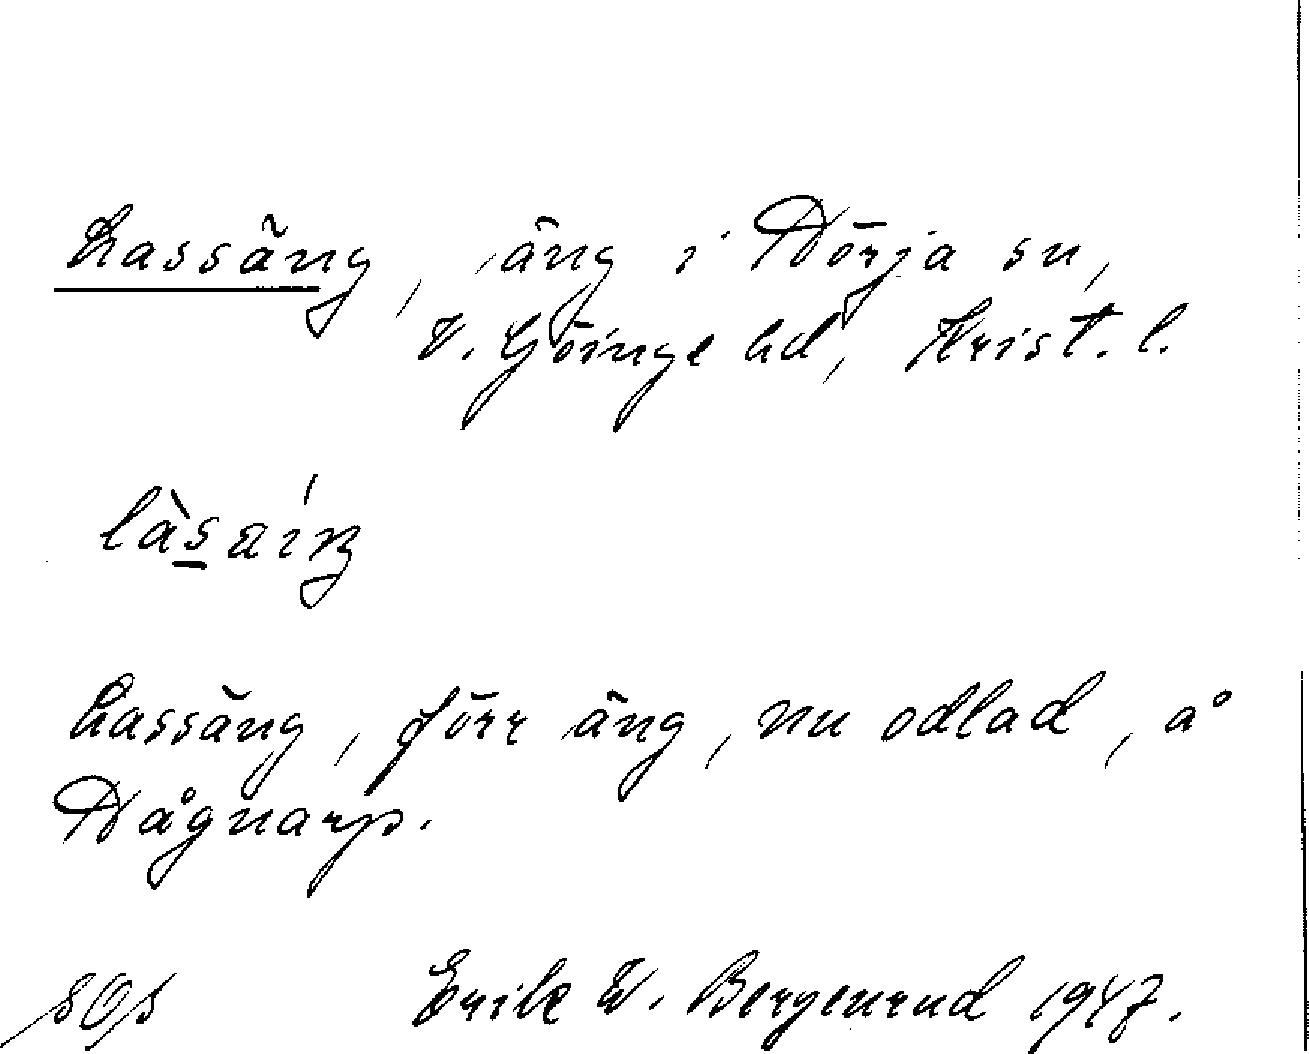 Lassäng, äng i Nörja sn,
V. Göinge hd, Krist. l.
Lassäng, förr äng, nu odlad, å
Någnarp.
Erik W. Bergenrud 1947.